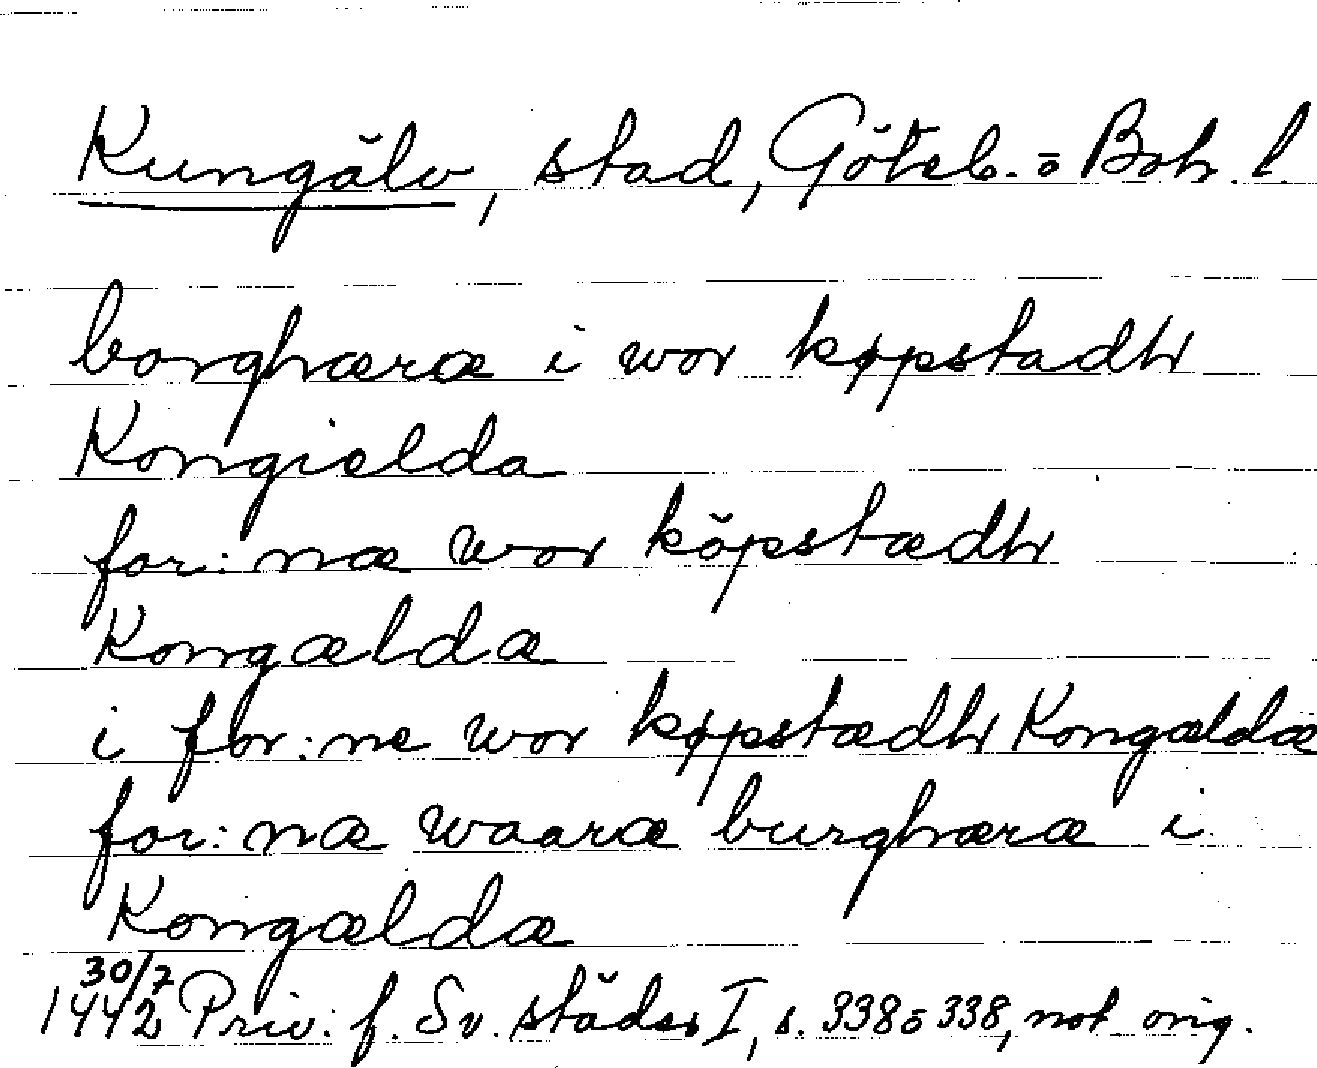 Kungälv, stad, Göteb. o Boh. l
borghæræ i wor køpstadh
Kongielda
for: næ wor köpstædh
Kongældæ
i for: ne wor køpstædh Kongældæ
for: næ waaræ burghæræ i
Kongældæ
30/7
1442 Priv. f. Sv. städer I, s. 338 o 338, not orig.